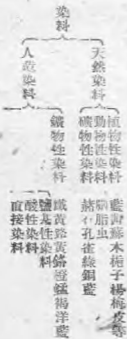 染料
天然染料
植物性染料
蘇木梔子楊梅皮等
動物性染料
脂虫
礦物性染料
赭石孔雀綠銅藍
人造染料
鑛物性染料
鐵黃鉻黃鉻橙錳褐洋藍
鹽基性染料
酸性染料
直接染料